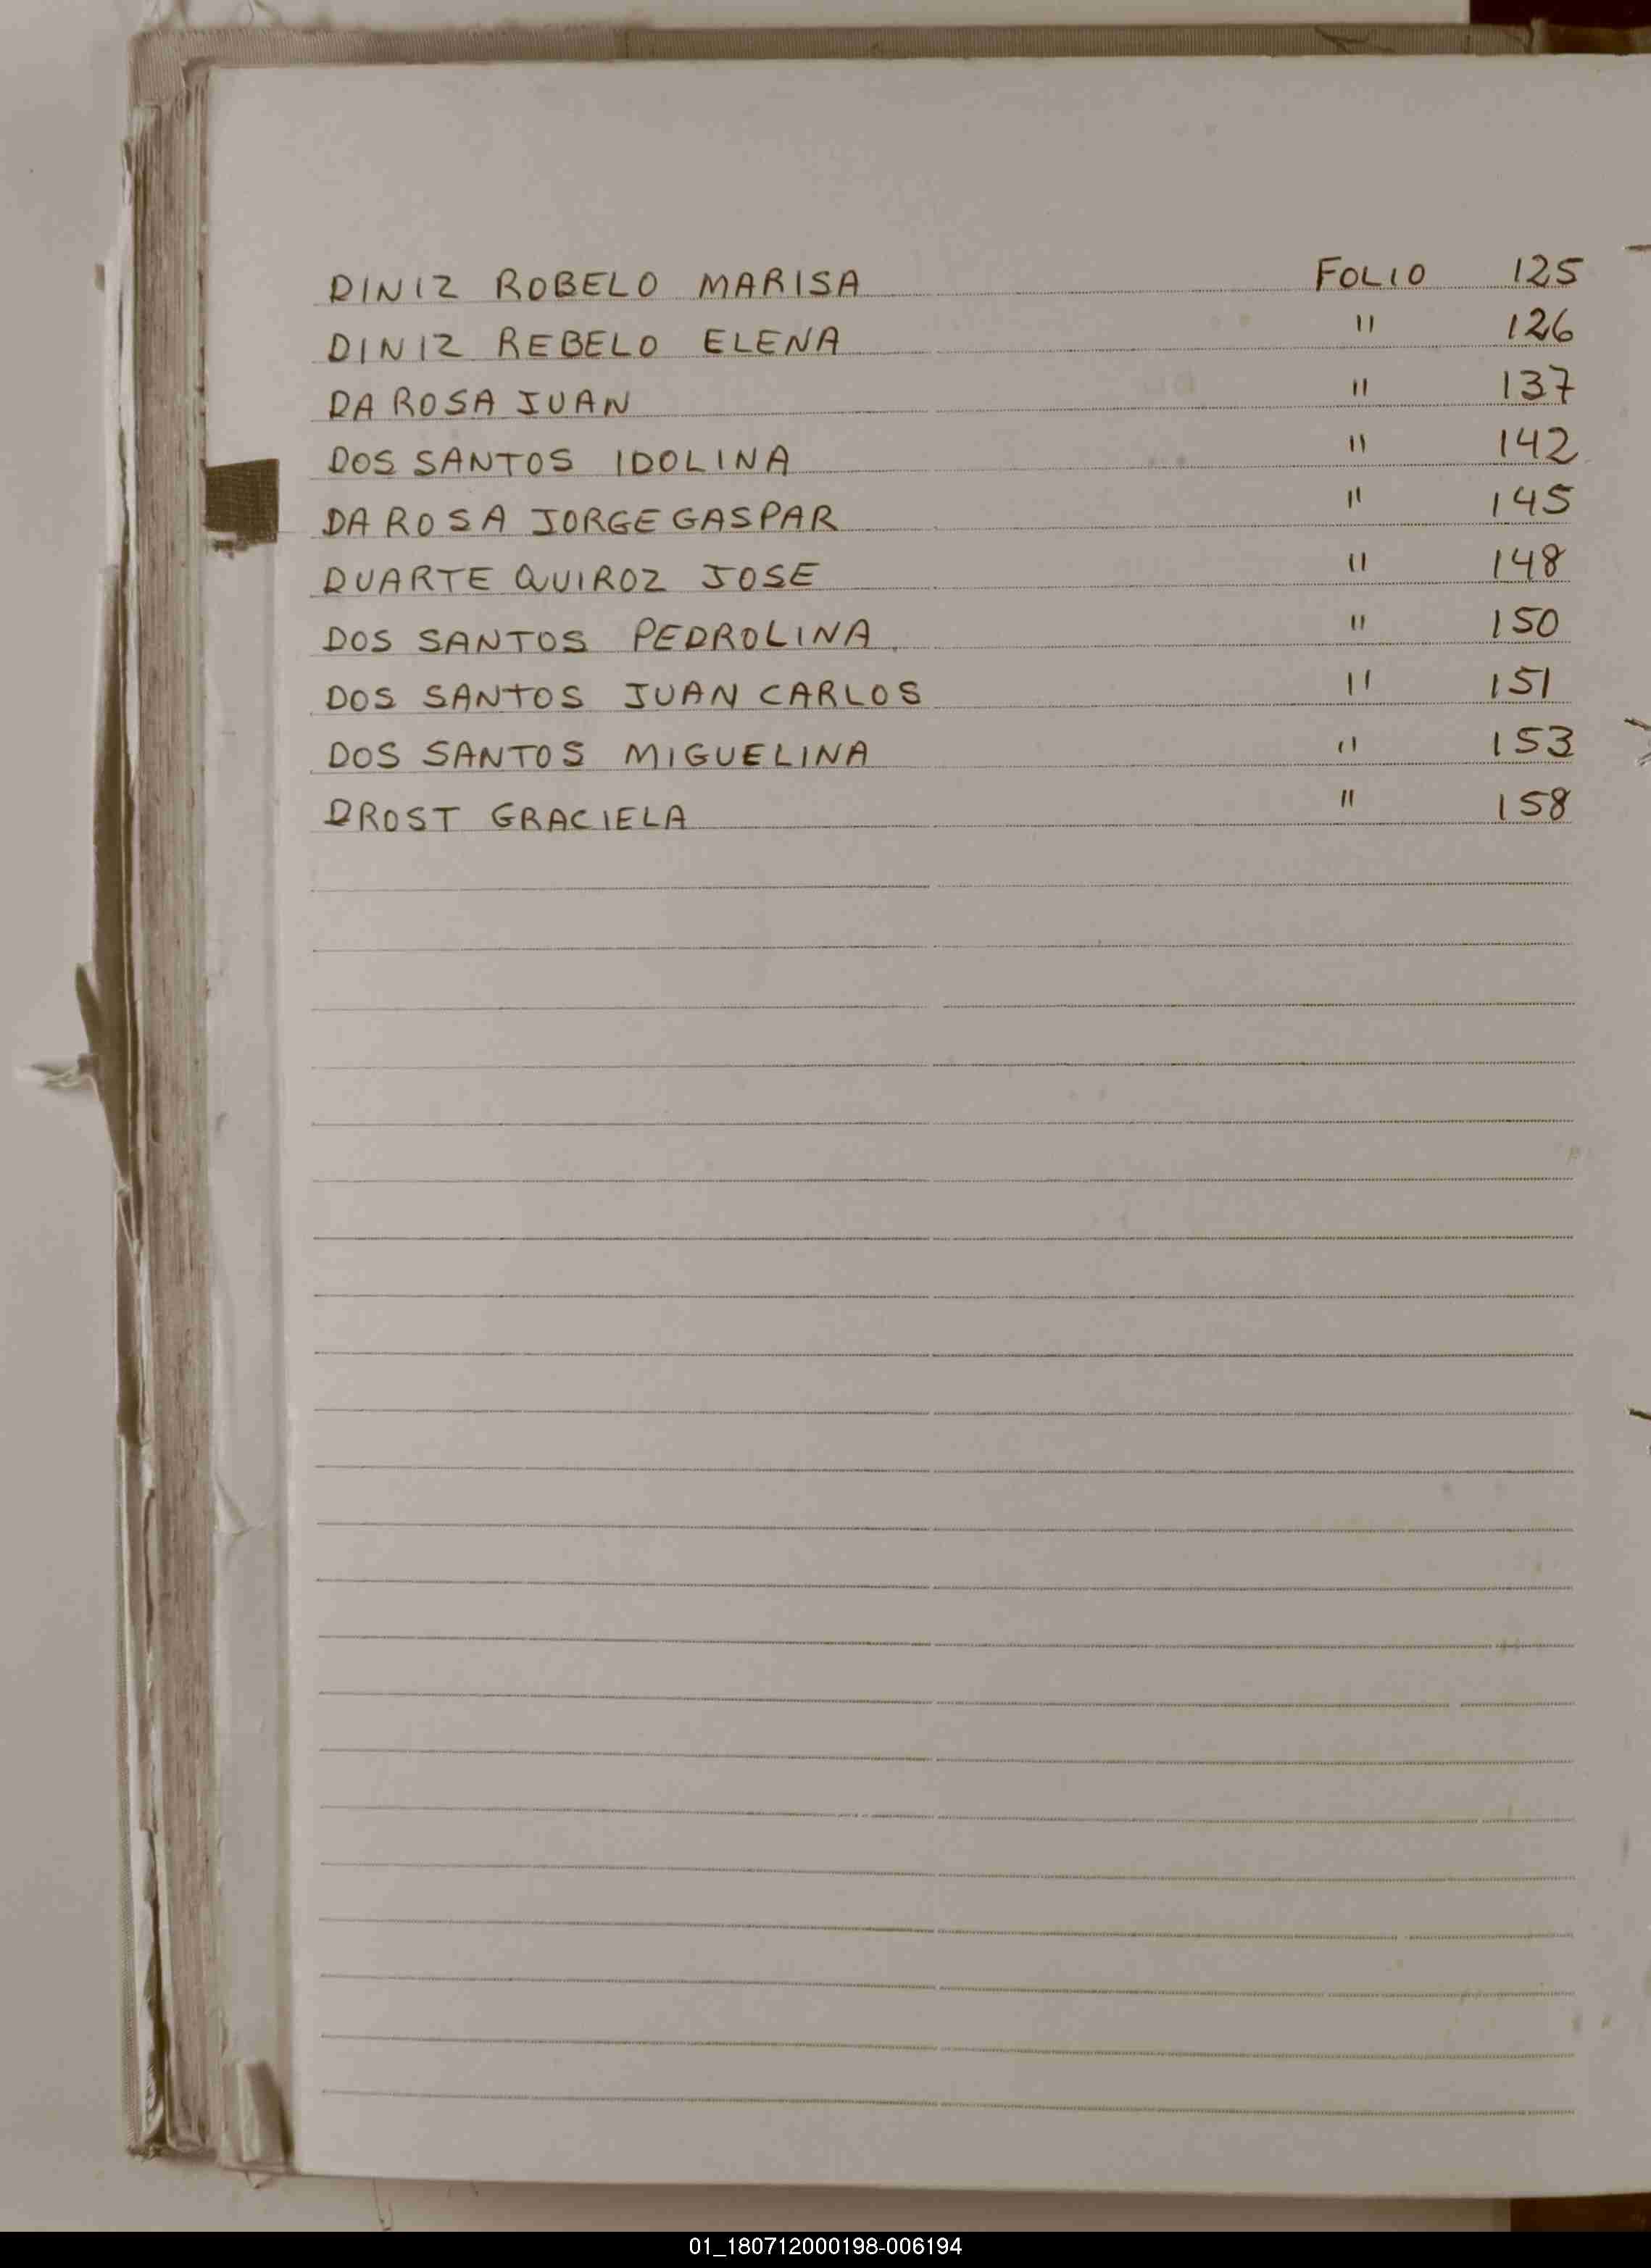 DINIZ ROBELO MARISA FOLIO 125
DINIZ REBELO ELENA " 126
DA ROSA JUAN " 137
DOS SANTOS IDOLINA " 142
DA ROSA JORGE GASPAR " 145
DUARTE QUIROZ JOSE " 148
DOS SANTOS PEDROLINA. " 150
DOS SANTOS JUAN CARLOS " 151
DOS SANTOS MIGUELINA " 153
DROST GRACIELA " 158
01_180712000198-006194